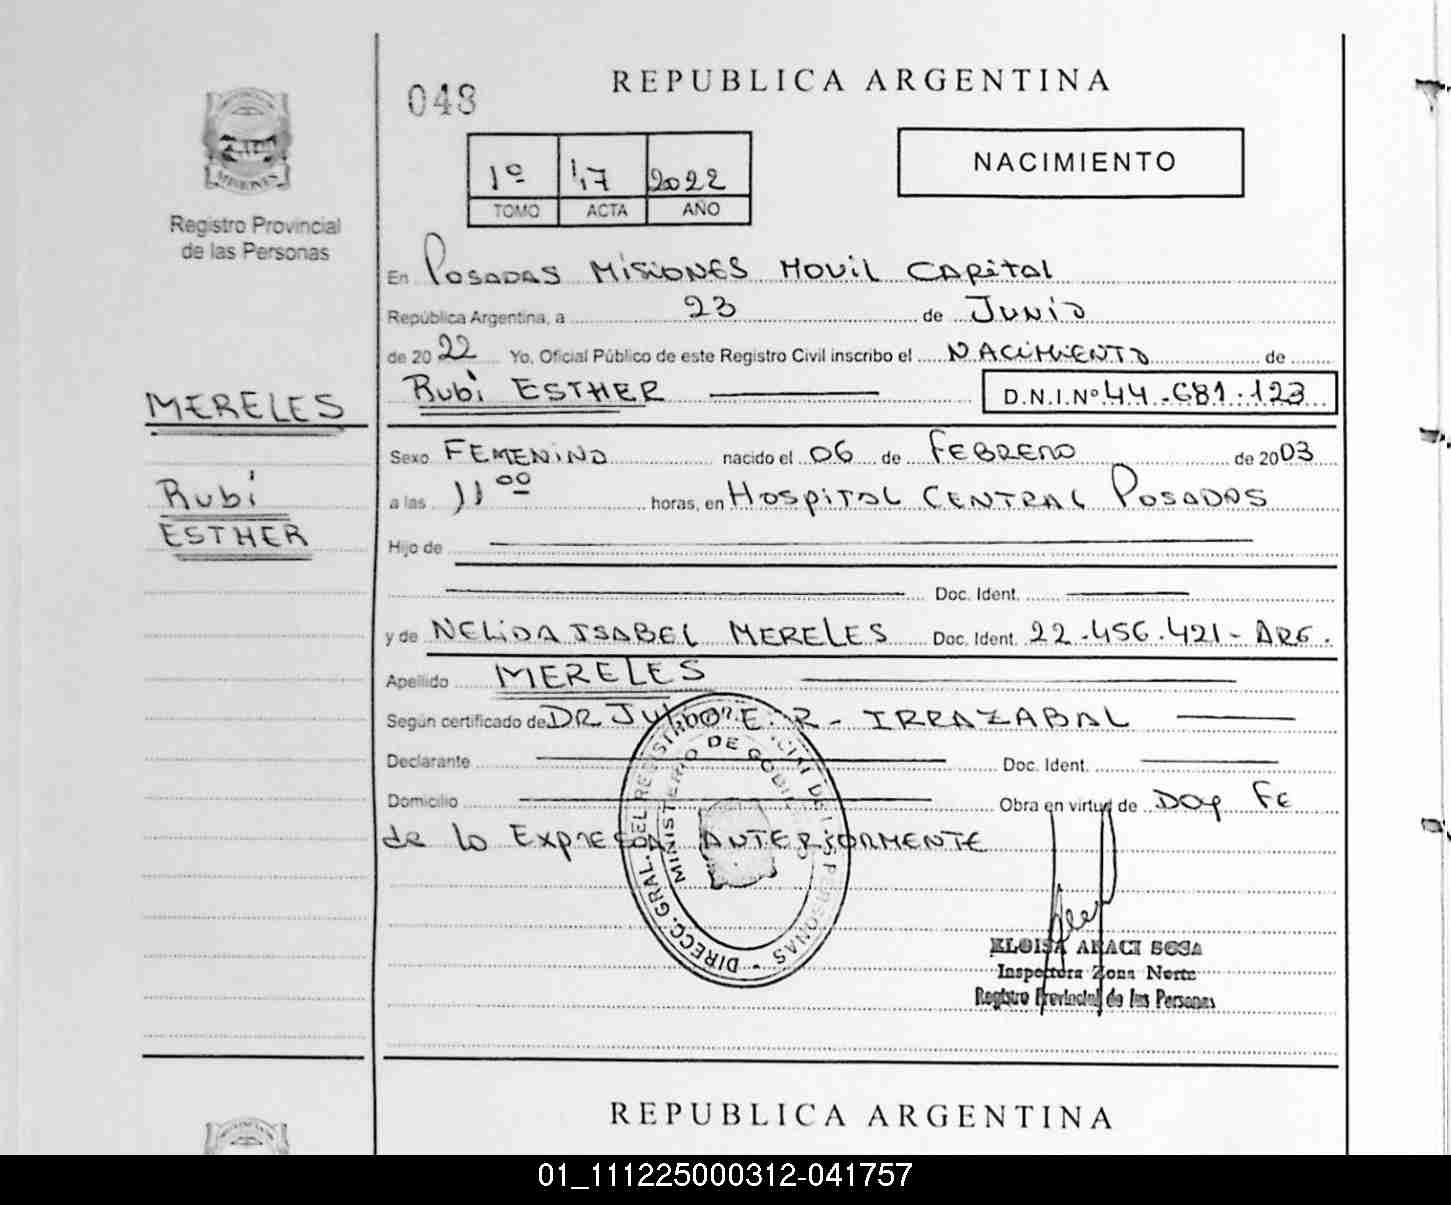 REPUBLICA ARGENTINA
048
1º 17 2022
TOMO ACTA AÑO
NACIMIENTO
MISIONES
Registro Provincial
de las Personas
En POSADAS MISIONES MOVIL CAPITAL
República Argentina, a 23 de JUNIO
de 2022 Yo, Oficial Público de este Registro Civil inscribo el NACIMIENTO de
Rubi ESTHER D.N.I.Nº 44.681.123
MERELES
Rubi
ESTHER
Sexo FEMENINO nacido el 06 de FEBRERO de 2003
a las 11 00 horas, en HOSPITAL CENTRAL POSADAS
Hijo de
Doc. Ident.
y de NELIDA ISABEL MERELES Doc. Ident. 22.456.421- ARG.
Apellido MERELES
Según certificado de DR JULIO E. R- IRRAZABAL
Declarante Doc. Ident.
Domicilio Obra en virtud de DOY FE
de lo EXPRESA ANTERIORMENTE
DIRECC. GRAL. DEL REGISTRO PROVINCIAL DE LAS PERSONAS
MINISTERIO DE GOBIERNO
ELOISA ARACI SOSA
Inspectora Zona Norte
Registro Provincial de las Personas
REPUBLICA ARGENTINA
01_111225000312-041757